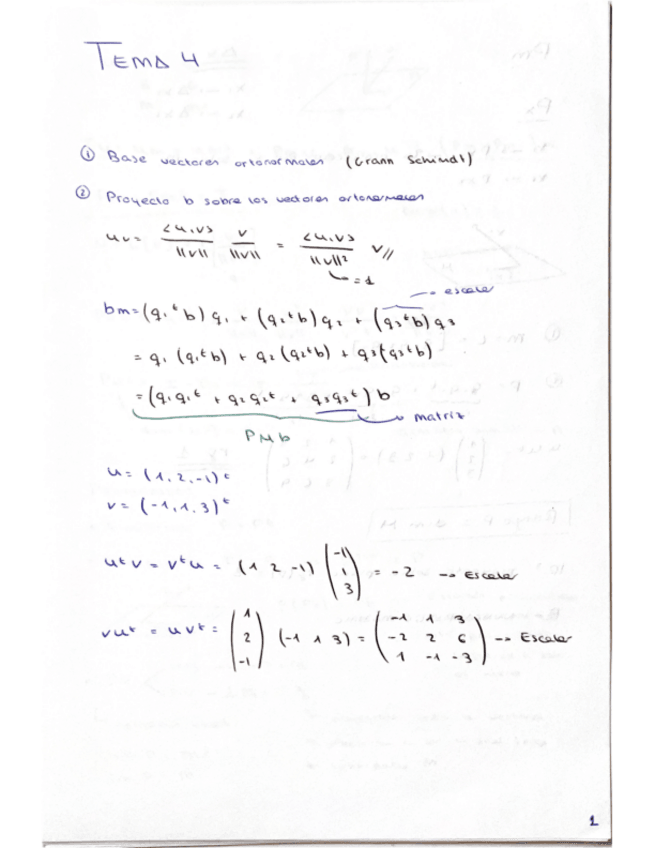 TEMA 4
① Base vectores ortonormales (Grann Schimdt)
② Proyecto b sobre los vectores ortonormales
uv = <u,v>/||v|| v/||v|| = <u,v>/||v||² v//
= 1
→ escalar
bm = (q₁ᵗb) q₁ + (q₂ᵗb) q₂ + (q₃ᵗb) q₃
= q₁ (q₁ᵗb) + q₂ (q₂ᵗb) + q₃ (q₃ᵗb)
= (q₁q₁ᵗ + q₂q₂ᵗ + q₃q₃ᵗ) b
→ matriz
PMb
u = (1, 2, -1)ᵗ
v = (-1, 1, 3)ᵗ
uᵗv = vᵗu = (1 2 -1) (-1 1 3) = -2 → Escalar
vuᵗ = uvᵗ = (1 2 -1) (-1 1 3) = (-1 1 3 -2 2 6 1 -1 -3) → Escalar
1